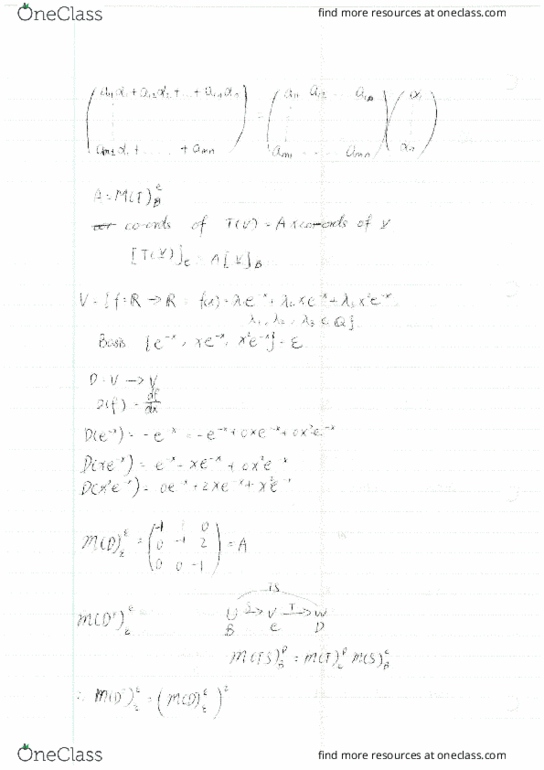 OneClass
find more resources at oneclass.com
a₁₁α₁ + a₁₂α₂ + ... + a₁ₙαₙ = a₁₁ a₁₂ ... a₁ₙ α₁
aₘ₁α₁ + ... + aₘₙ aₘ₁ ... aₘₙ αₙ
A = M(T)
co-ords of T(V) = A x co-ords of V
[T(V)]_C = A[V]_B
V = {f: R → R : f(x) = λ₁e^-x + λ₂xe^-x + λ₃x²e^-x,
λ₁, λ₂, λ₃ ∈ Q}
Basis {e^-x, xe^-x, x²e^-x} = ε
D: V → V
D(f) = df/dx
D(e^-x) = -e^-x = -e^-x + 0xe^-x + 0x²e^-x
D(xe^-x) = e^-x - xe^-x + 0x²e^-x
D(x²e^-x) = 0e^-x + 2xe^-x + x²e^-x
M(D)^ε_ε = -1 1 0
0 -1 2 = A
0 0 -1
TS
U S→ V T→ W
B C D
M(TS)^D_B = M(T)^D_C M(S)^C_B
∴ M(D²)^ε_ε = (M(D)^ε_ε)²
OneClass
find more resources at oneclass.com